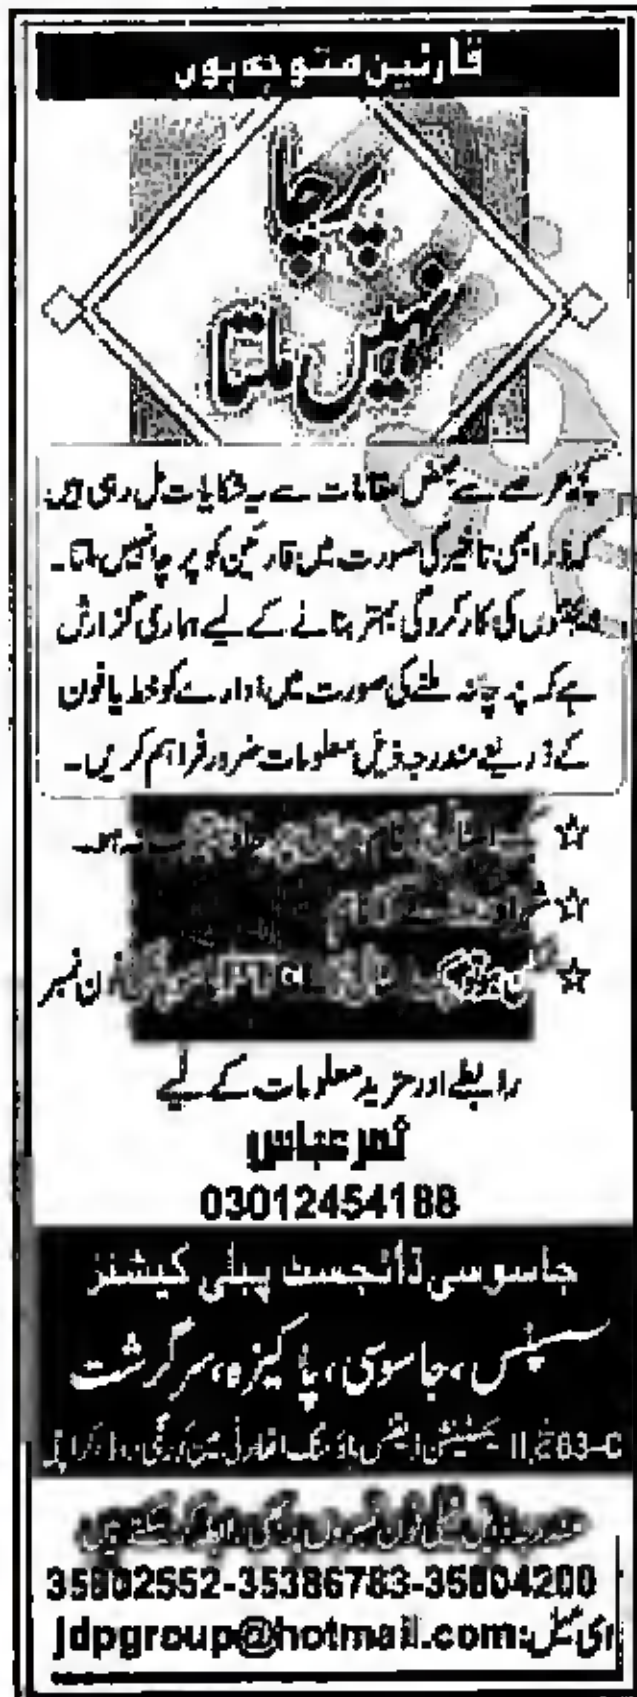 قارئین متوجہ ہوں
پرچا
نہیں ملتا
کچھ عرصے سے بعض مقامات سے یہ شکایات مل رہی ہیں
کہ ذرا بھی تاخیر کی صورت میں قارئین کو پرچا نہیں ملتا۔
ایجنٹوں کی کارکردگی بہتر بنانے کے لیے ہماری گزارش
ہے کہ پرچا نہ ملنے کی صورت میں ادارے کو خط یا فون
کے ذریعے مندرجہ ذیل معلومات ضرور فراہم کریں۔
☆ بک اسٹال کا نام جہاں پرچا دستیاب نہ ہو۔
☆ شہر اور علاقے کا نام
☆ ممکن ہو تو بک اسٹال کا PTCL یا موبائل فون نمبر
رابطے اور مزید معلومات کے لیے
ثمر عباس
03012454188
جاسوسی ڈائجسٹ پبلی کیشنز
سسپنس، جاسوسی، پاکیزہ، سرگزشت
63-C فیز II ایکسٹینشن ڈیفنس ہاؤسنگ اتھارٹی مین کورنگی روڈ، کراچی
مندرجہ ذیل ٹیلی فون نمبروں پر بھی رابطہ کر سکتے ہیں
35802552-35386783-35804200
ای میل: jdpgroup@hotmail.com